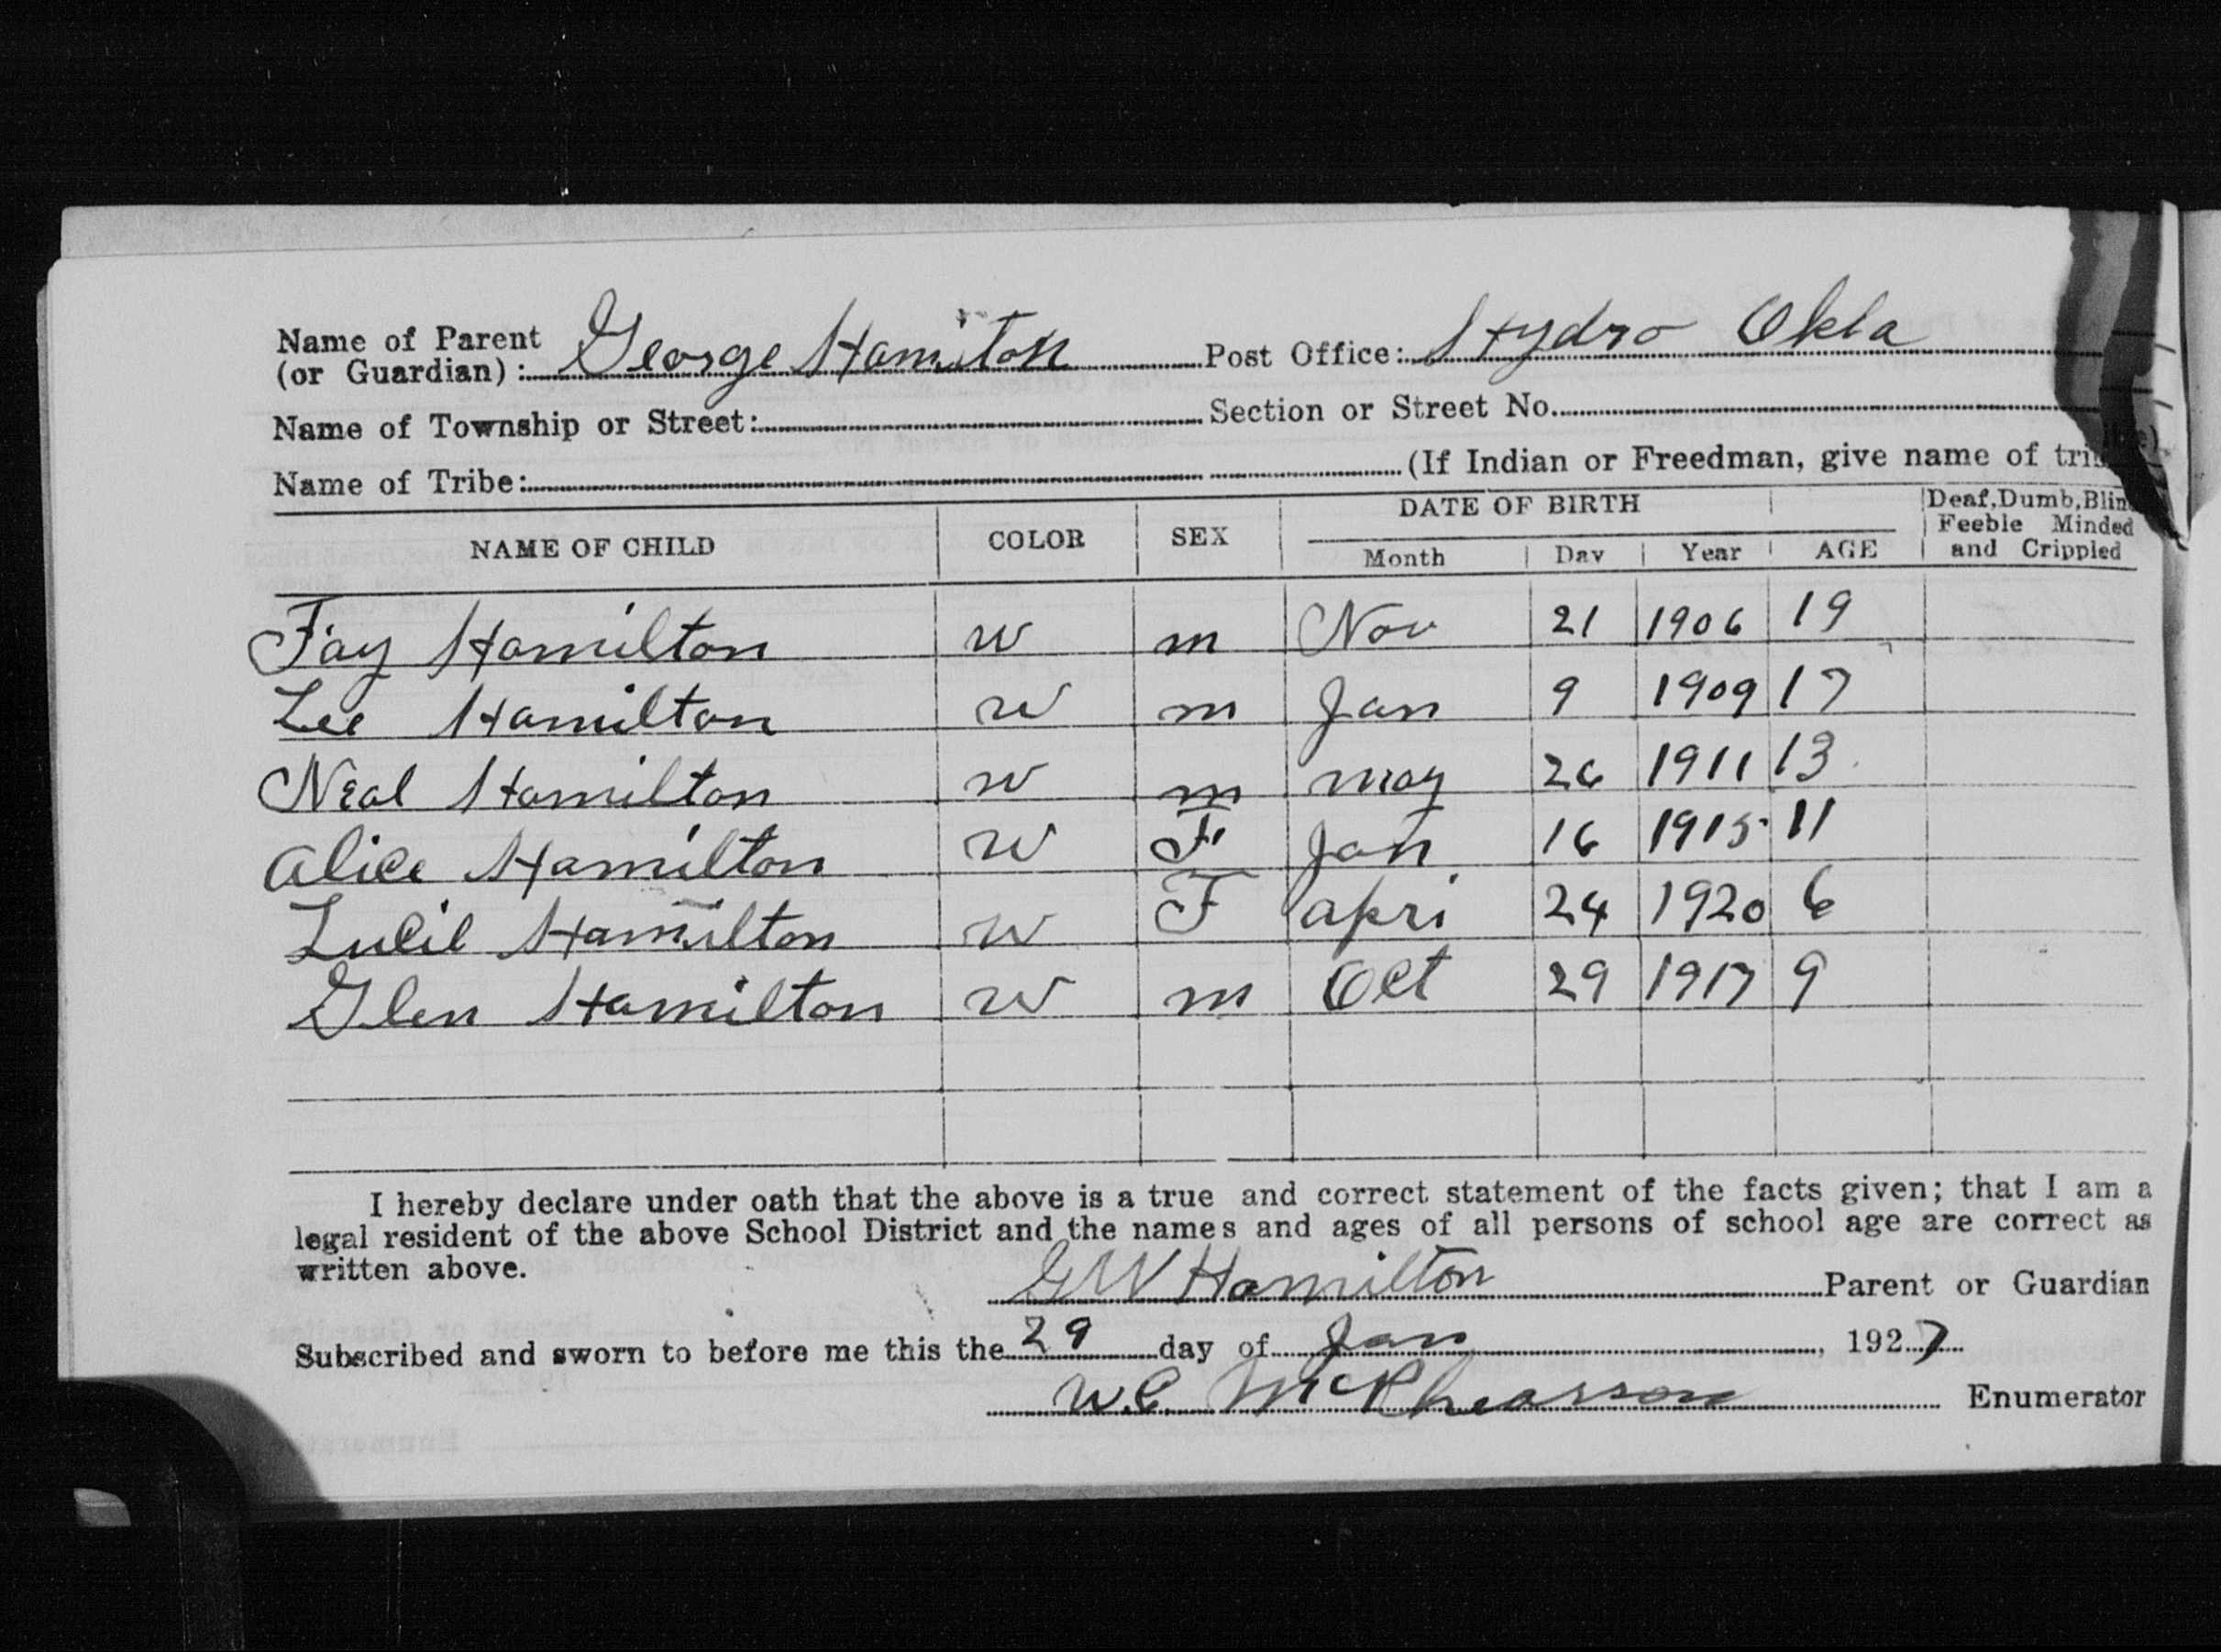 Name of Parent
(or Guardian): George Hamiton Post Office: Hydro Okla
Name of Township or Street: Section or Street No.
Name of Tribe: (If Indian or Freedman, give name of
NAME OF CHILD COLOR SEX DATE OF BIRTH Month Day Year AGE Deaf, Dumb, Blind Feeble Minded and Crippled
Fay Hamilton w m Nov 21 1906 19
Lee Hamilton w m Jan 9 1909 17
Neal Hamilton w m may 26 1911 13
Alice Hamilton w F Jan 16 1915 11
Lucil Hamilton w F apri 24 1920 6
Glen Hamilton w m Oct 29 1917 9
I hereby declare under oath that the above is a true and correct statement of the facts given; that I am a
legal resident of the above School District and the names and ages of all persons of school age are correct as
written above.
G W Hamilton Parent or Guardian
Subscribed and sworn to before me this the 29 day of Jan, 1927
W.C. McPhearson Enumerator